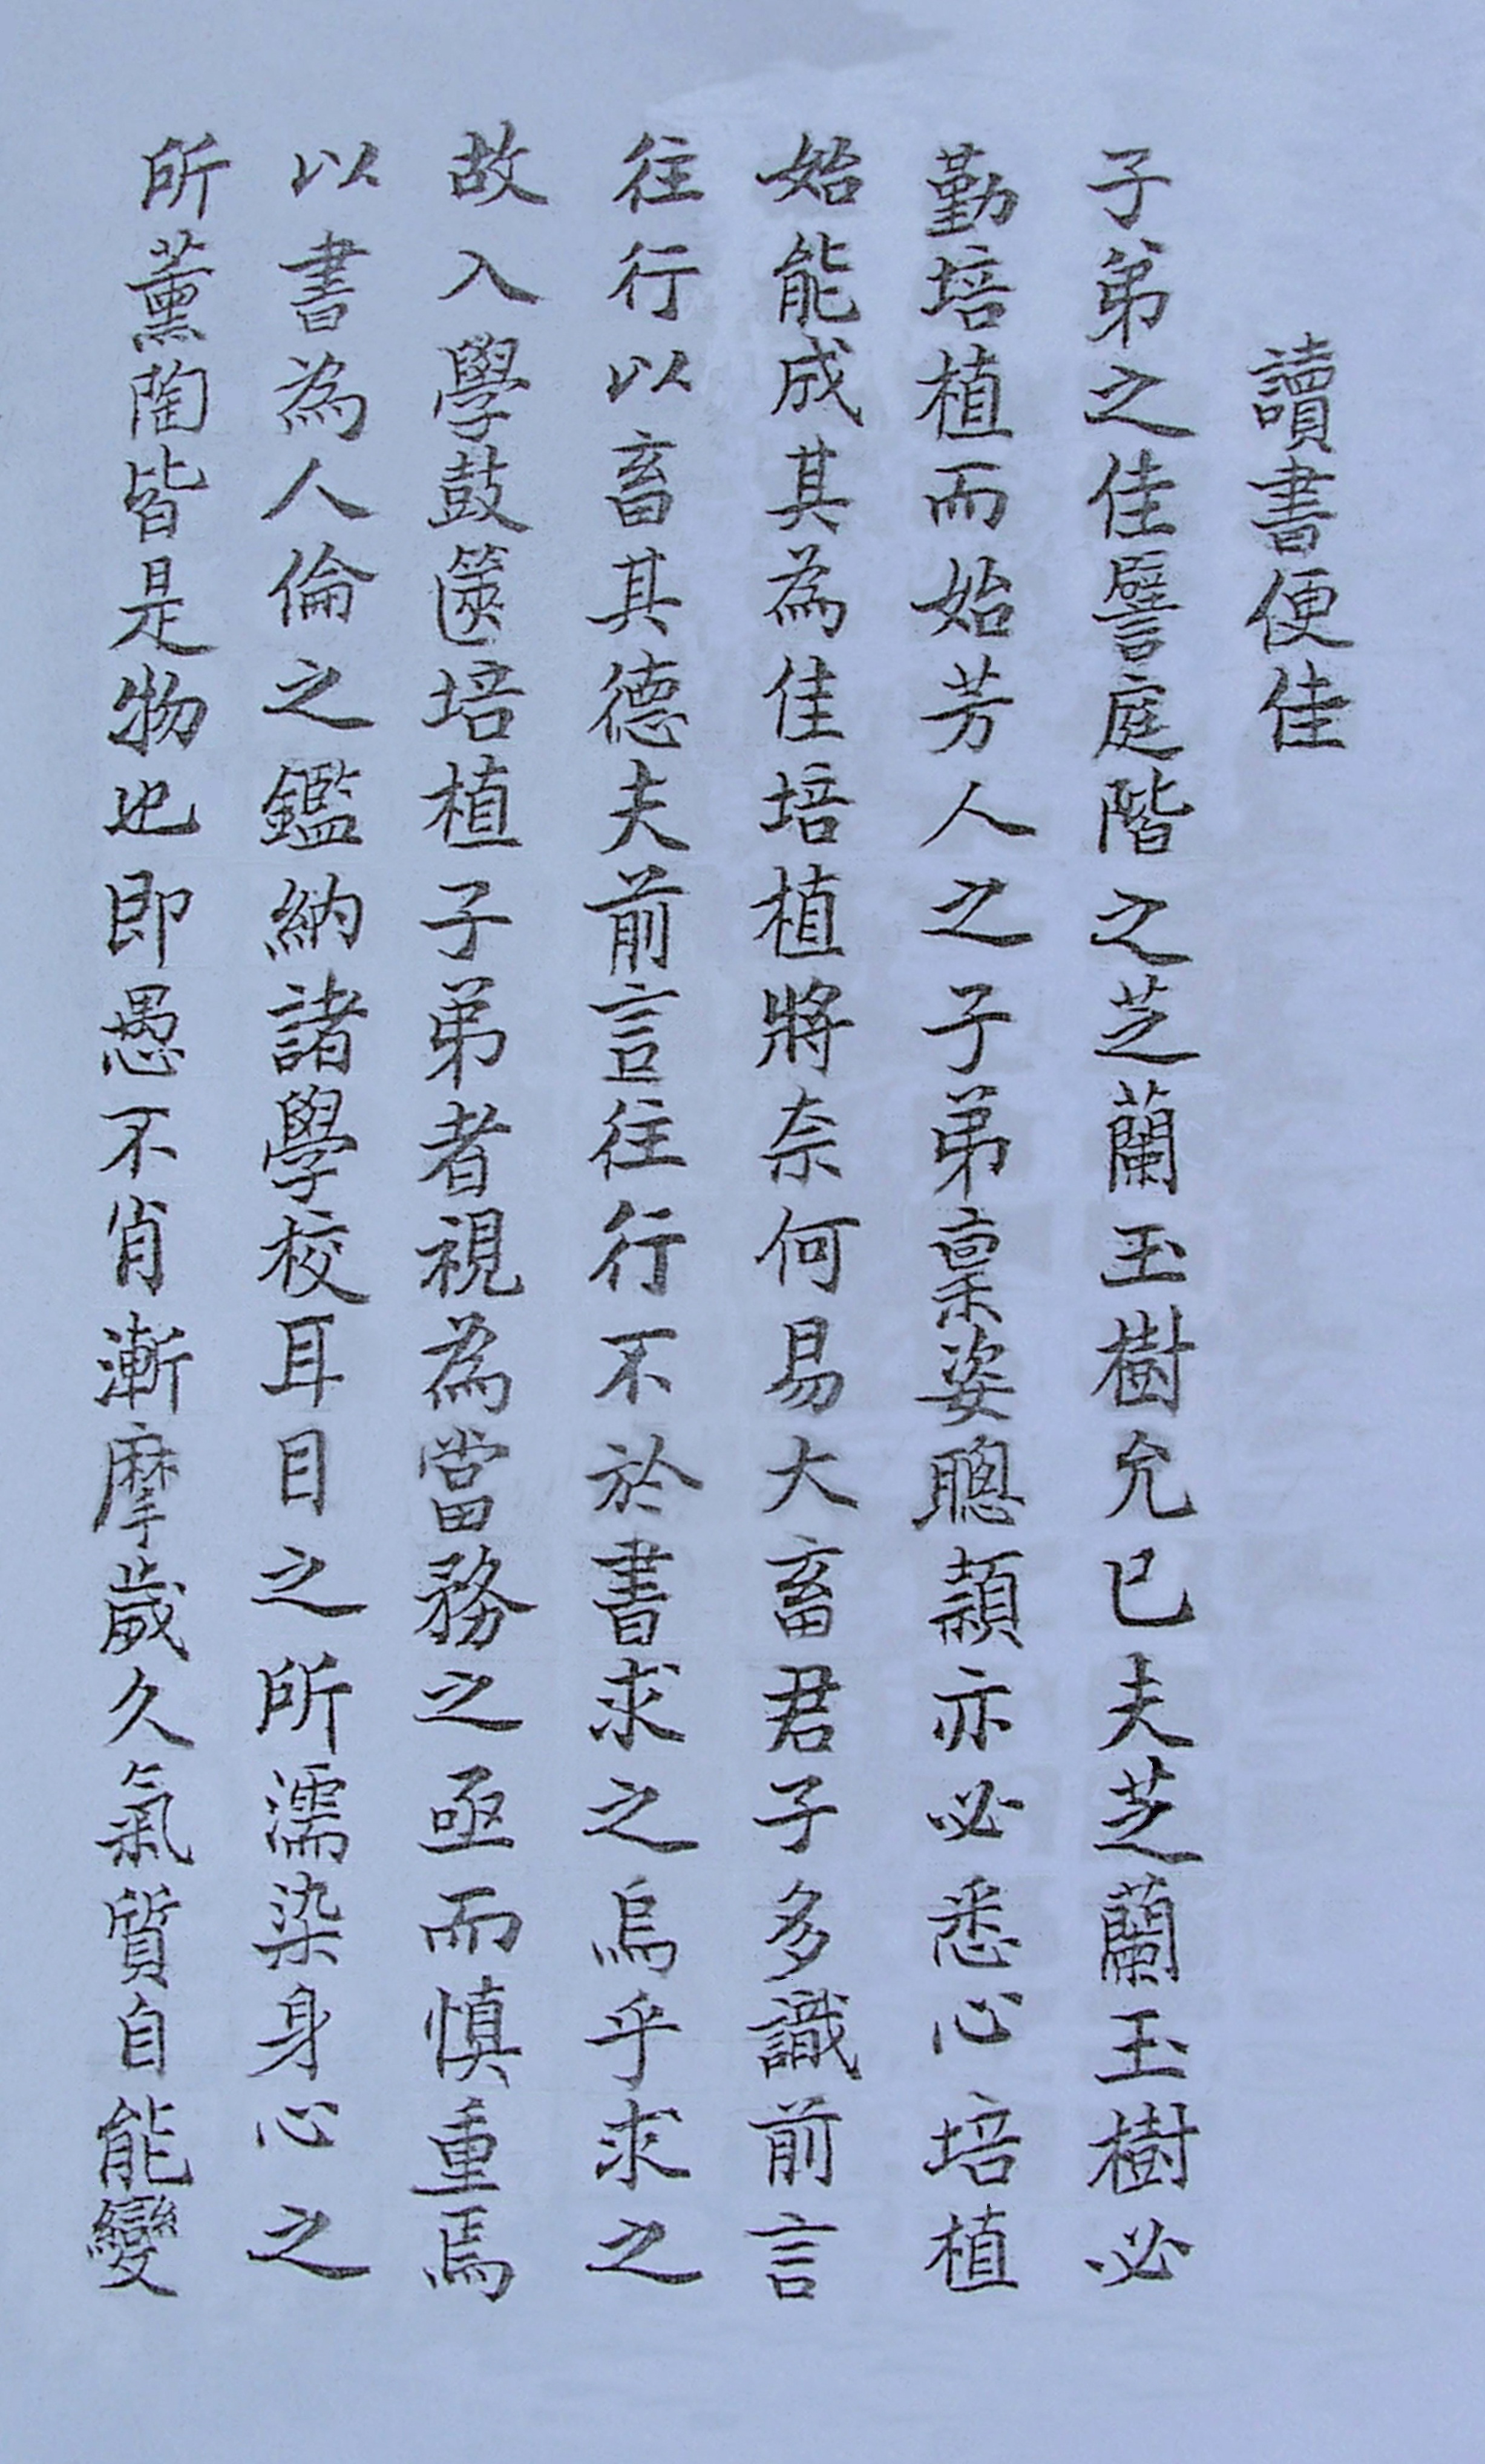 讀書便佳
子弟之佳譬庭階之芝蘭玉樹允已夫芝蘭玉樹必
勤培植而始芳人之子弟稟姿聰穎亦必悉心培植
始能成其為佳培植將奈何易大畜君子多識前言
往行以畜其德夫前言往行不於書求之烏乎求之
故入學鼓篋培植子弟者視為當務之亟而慎重焉
以書為人倫之鑑納諸學校耳目之所濡染身心之
所薰陶皆是物也即愚不肖漸摩歲久氣質自能變